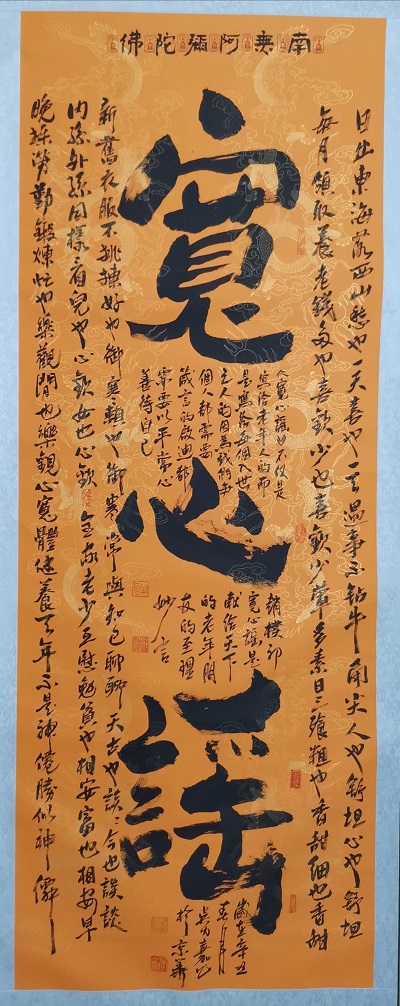 南無阿彌陀佛
寬心謠
日出東海落西山愁也一天喜也一天遇事不钻牛角尖人也舒坦心也舒坦
每月領取養老錢多也喜歡少也喜歡少葷多素日三餐粗也香甜細也香甜
新舊衣服不挑揀好也御寒賴也御寒常與知己聊聊天古也談談今也談談
內孫外孫同樣看兒也心歡女也心歡全家老少互慰勉貧也相安富也相安早
晚操勞勤鍛煉忙也樂觀閒也樂觀心寬體健養天年不是神僊勝似神僊
寬心謠不仅是
寫給老年人的而
是寫給每個入世
之人的因為我們每
個人都需要
箴言的啟迪都
需要以平常心
善待自己
趙樸初
寬心謠是
獻給天下
的老年朋
友的至理
妙言
歲在辛丑
於京華